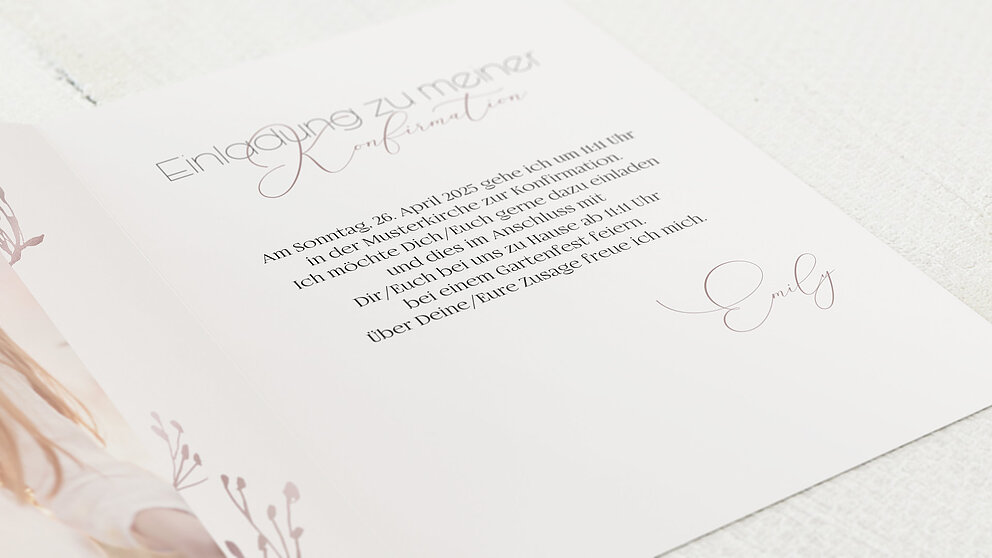 Einladung zu meiner
Konfirmation
Am Sonntag, 26. April 2025 gehe ich um 11:11 Uhr
in der Musterkirche zur Konfirmation.
Ich möchte Dich/Euch gerne dazu einladen
und dies im Anschluss mit
Dir/Euch bei uns zu Hause ab 11:11 Uhr
bei einem Gartenfest feiern.
Über Deine/Eure Zusage freue ich mich.
Emily